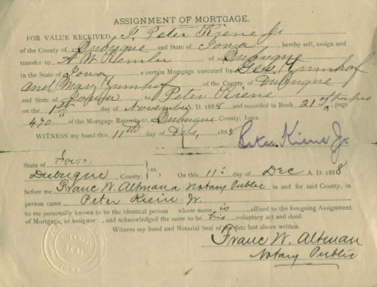 ASSIGNMENT OF MORTGAGE.
FOR VALUE RECEIVED, I, Peter Kiene Jr
of the County of Dubuque and State of Iowa hereby sell, assign and
transfer to A. W. Kemler of Dubuque
in the State of Iowa, a certain Mortgage executed by Geo.
and Mary of the County of Dubuque
and State of to Peter Kiene
on the 1st day of November D. 1888 and recorded in Book 21 of
470 Records of Dubuque County, Iowa.
WITNESS my hand this 11th day of Dec, 1888
Peter Kiene Jr
State of Iowa
Dubuque County, ss. On this 11th day of Dec A. D. 1888
before me Franc W. Altman a Notary Public in and for said County, in
person came Peter Kiene Jr.
to me personally known to be the identical person whose name is affixed to the foregoing Assignment
of Mortgage, as assignor, and acknowledged the same to be his voluntary act and deed.
Witness my hand and Notarial Seal date last above written.
Franc W. Altman
Notary Public